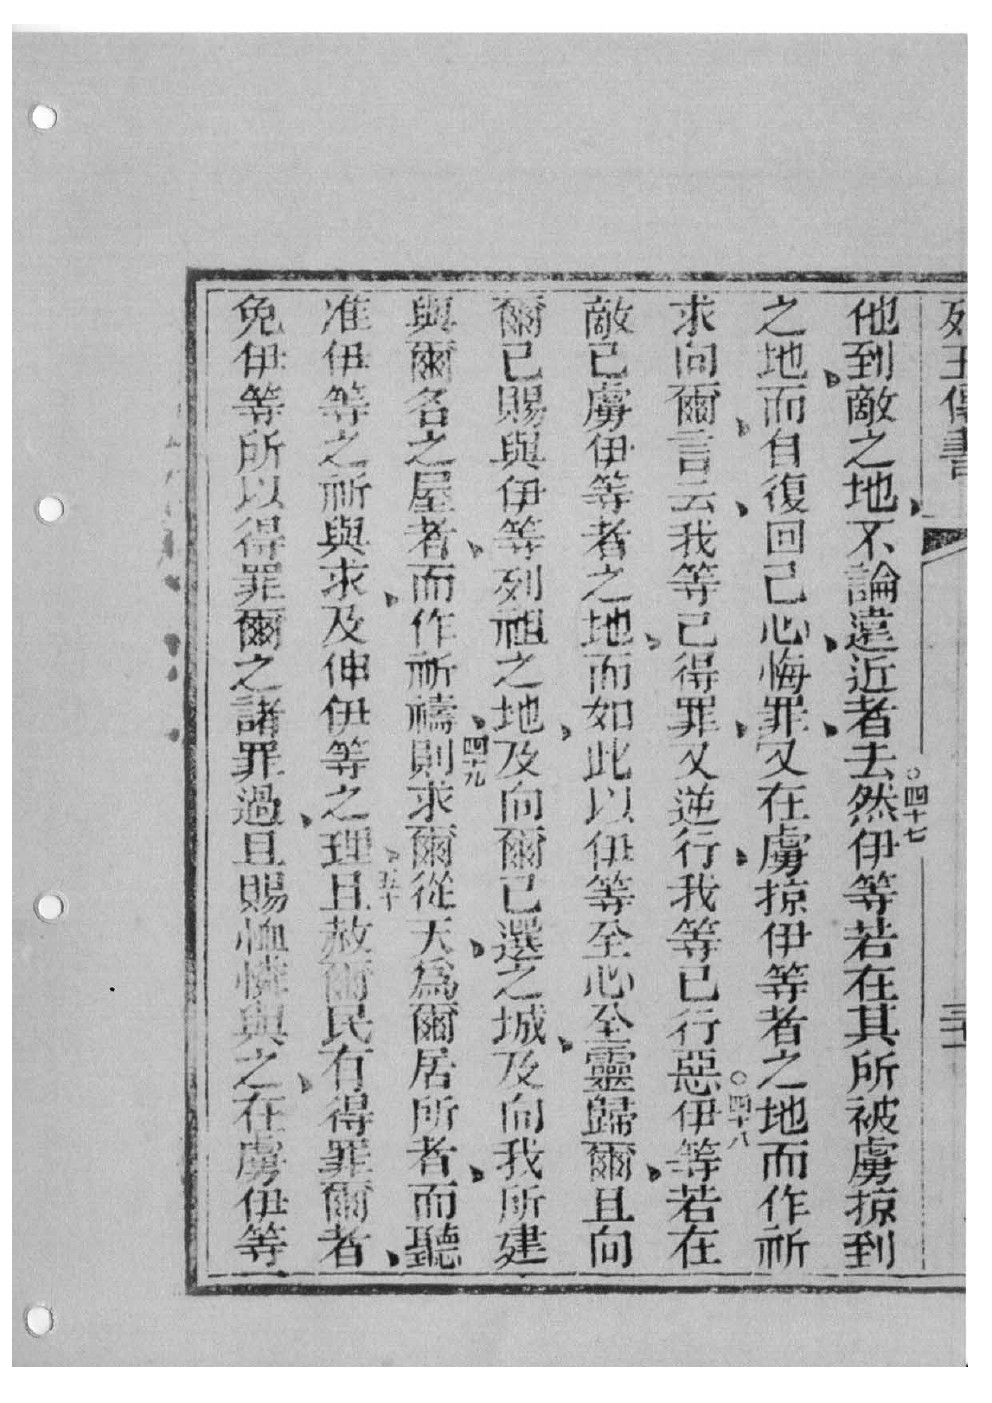 列王傳書
他到敵之地不論遠近者去○四十七然伊等若在其所被虜掠到
之地而自復回己心悔罪又在虜掠伊等者之地而作祈
求向爾言云我等已得罪又逆行我等已行惡○四十八伊等若在
敵已虜伊等者之地而如此以伊等至心至靈歸爾且向
爾已賜與伊等列祖之地及向爾已選之城及向我所建
與爾名之屋者而作祈禱四十九則求爾從天為爾居所者而聽
准伊等之祈與求及伸伊等之理五十且赦爾民有得罪爾者
免伊等所以得罪爾之諸罪過且賜恤憐與之在虜伊等